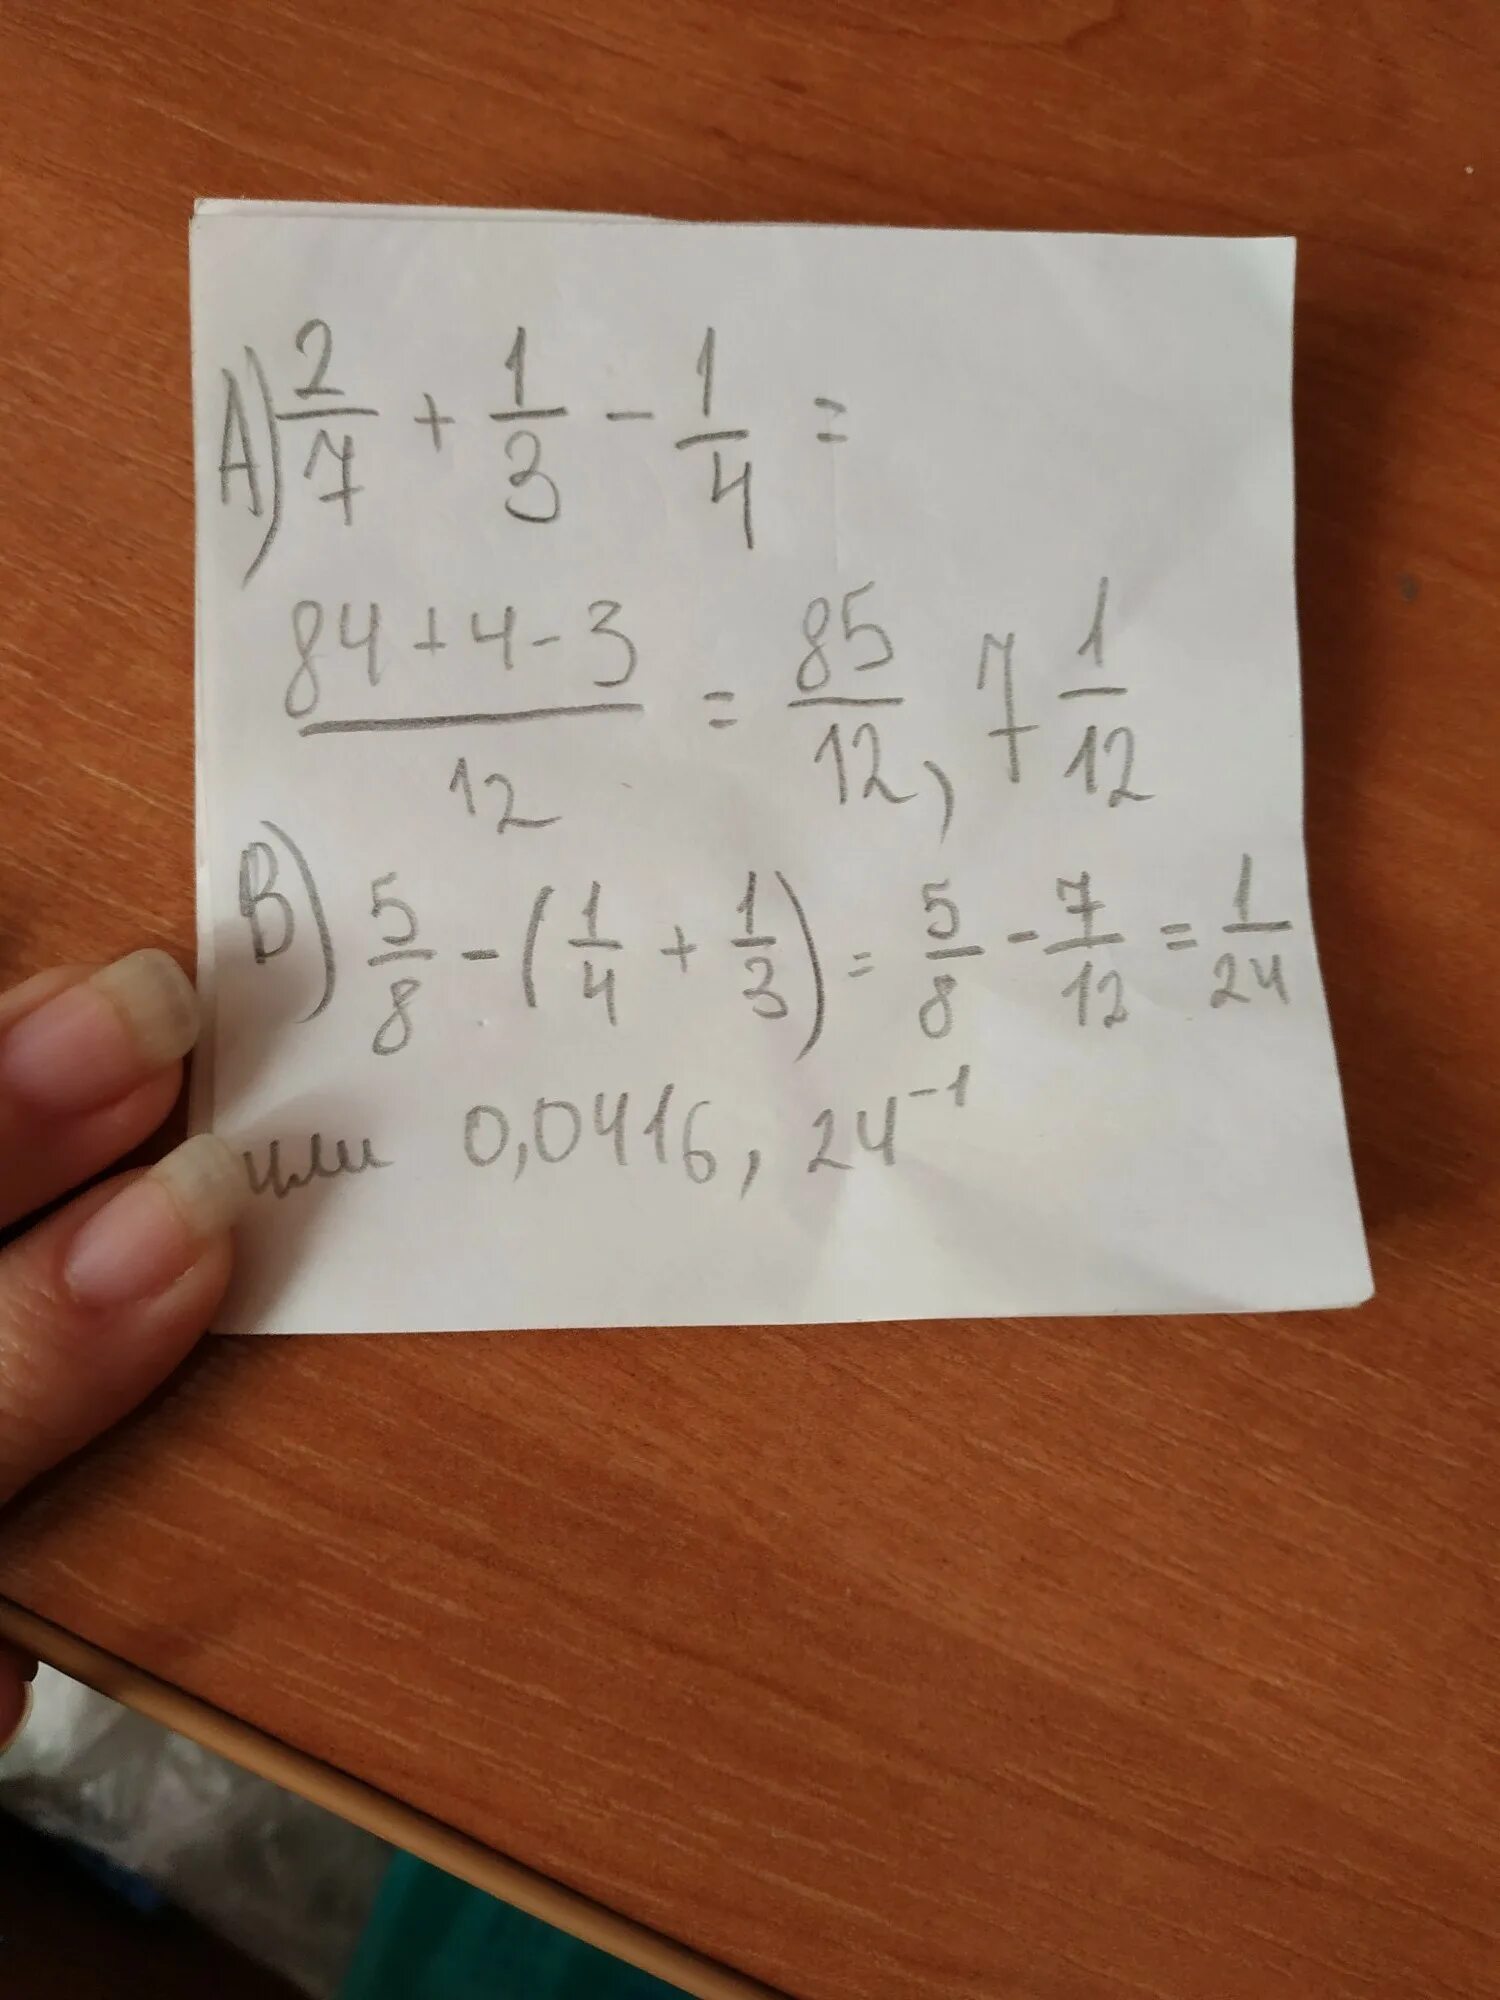 А) 2/7 + 1/3 - 1/4 =
84+4-3/12 = 85/12, 7 1/12
В) 5/8 - (1/4 + 1/3) = 5/8 - 7/12 = 1/24
или 0,0416, 24⁻¹